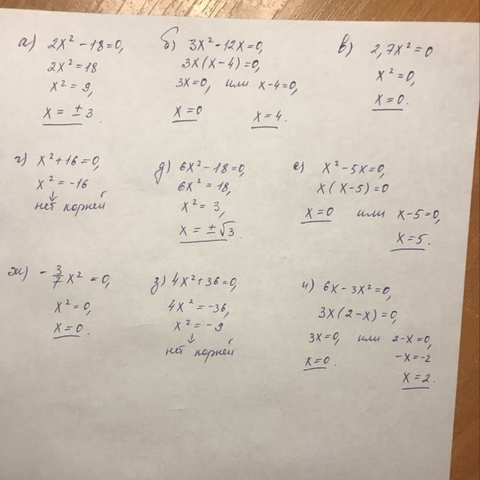 а) 2x² - 18 = 0,
2x² = 18
x² = 9,
x = ± 3.
б) 3x² - 12x = 0,
3x(x - 4) = 0,
3x = 0, или x - 4 = 0,
x = 0 x = 4.
в) 2,7x² = 0
x² = 0,
x = 0.
г) x² + 16 = 0,
x² = -16
↓
нет корней
д) 6x² - 18 = 0,
6x² = 18,
x² = 3,
x = ±√3.
е) x² - 5x = 0,
x(x - 5) = 0
x = 0 или x - 5 = 0,
x = 5.
ж) - 3/7 x² = 0,
x² = 0,
x = 0.
з) 4x² + 36 = 0,
4x² = -36,
x² = -9
↓
нет корней
и) 6x - 3x² = 0,
3x(2 - x) = 0,
3x = 0, или 2 - x = 0,
x = 0. -x = -2
x = 2.